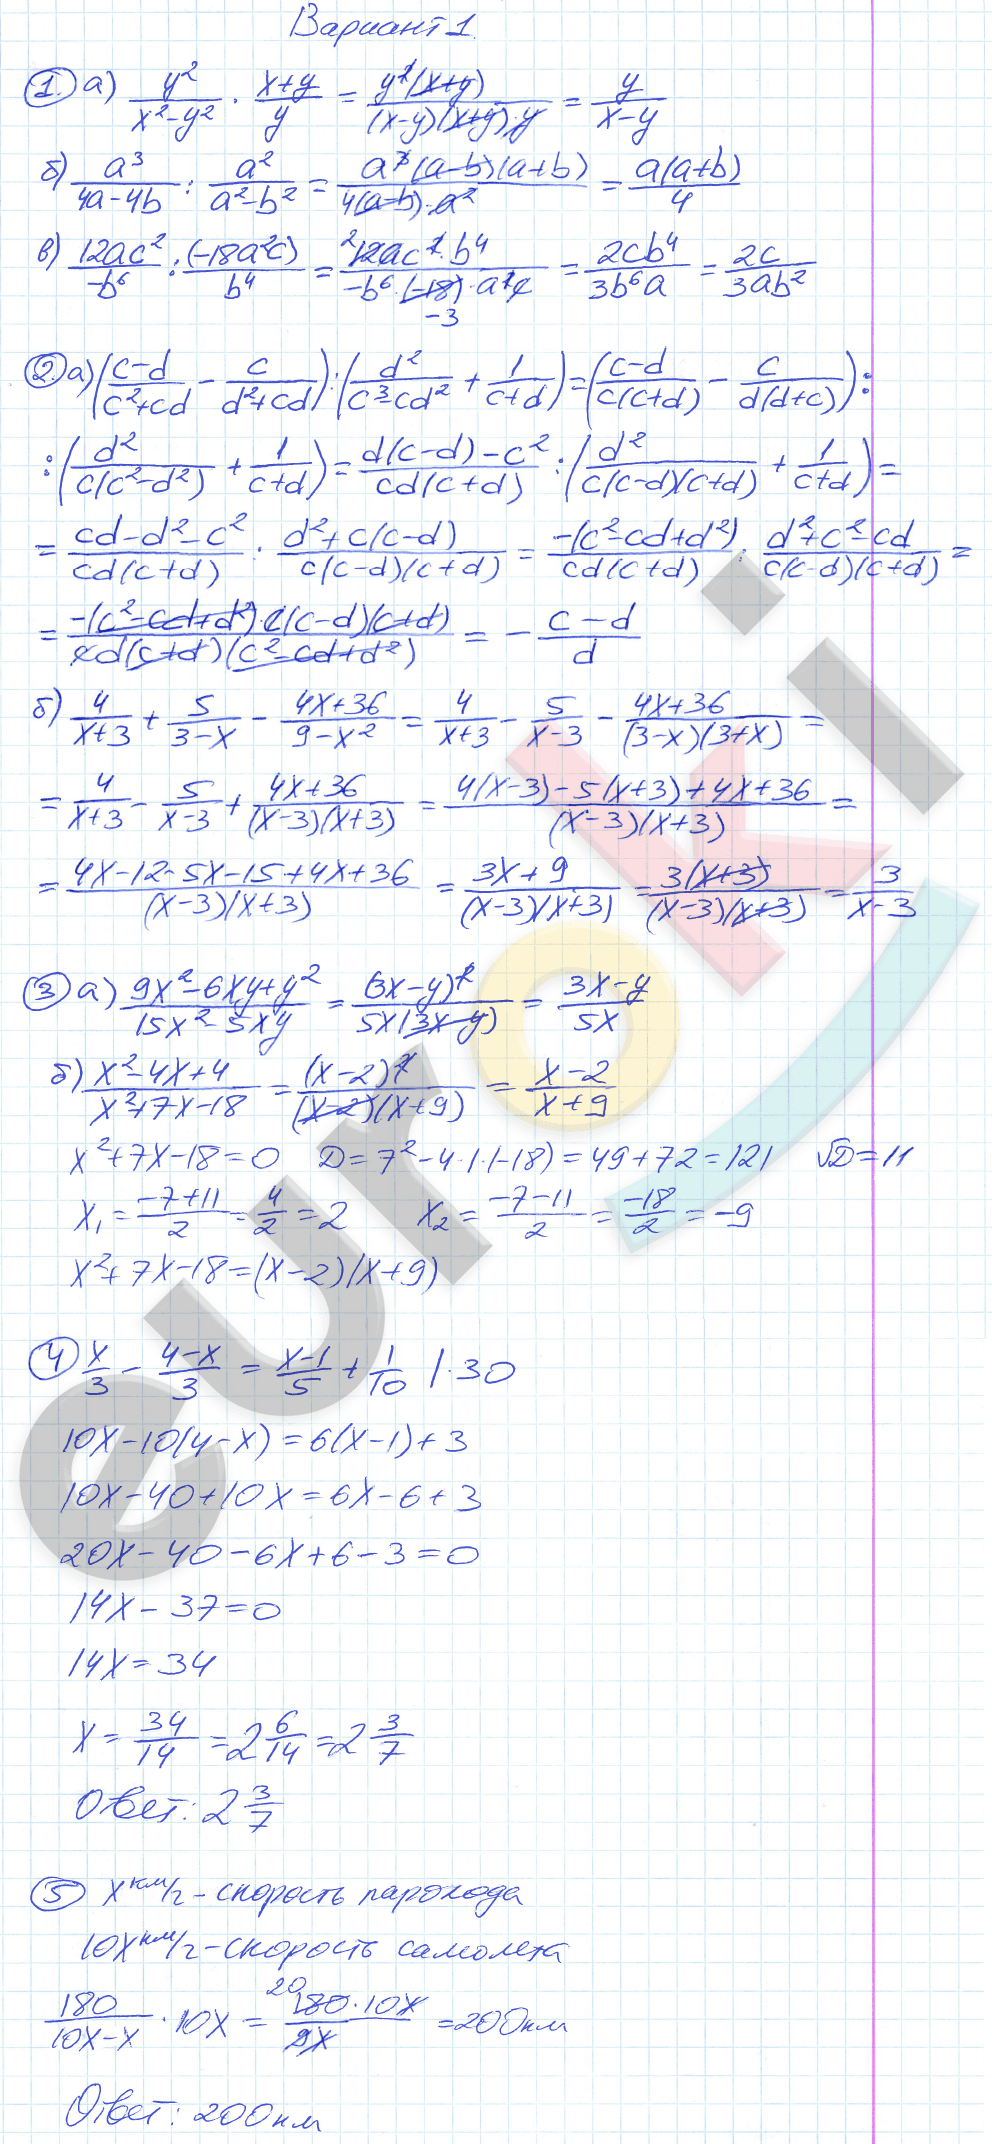 Вариант 1.
1. а) y²/(x²-y²) · (x+y)/y = y²(x+y)/((x-y)(x+y)·y) = y/(x-y)
б) a³/(4a-4b) : a²/(a²-b²) = a³(a-b)(a+b)/(4(a-b)·a²) = a(a+b)/4
в) 12ac²/(-b⁶) : (-18a²c)/b⁴ = 12ac²·b⁴/(-b⁶·(-18)·a²c) = 2cb⁴/(3b⁶a) = 2c/(3ab²)
2. а) ((c-d)/(c²+cd) - c/(d²+cd)) : (d²/(c³-cd²) + 1/(c+d)) = ((c-d)/(c(c+d)) - c/(d(d+c))) :
: (d²/(c(c²-d²)) + 1/(c+d)) = (d(c-d)-c²)/(cd(c+d)) : (d²/(c(c-d)(c+d)) + 1/(c+d)) =
= (cd-d²-c²)/(cd(c+d)) · (d²+c(c-d))/(c(c-d)(c+d)) = -(c²-cd+d²)/(cd(c+d)) : (d²+c²-cd)/(c(c-d)(c+d)) =
= -(c²-cd+d²)·c(c-d)(c+d)/(cd(c+d)(c²-cd+d²)) = - (c-d)/d
б) 4/(x+3) + 5/(3-x) - (4x+36)/(9-x²) = 4/(x+3) - 5/(x-3) - (4x+36)/((3-x)(3+x)) =
= 4/(x+3) - 5/(x-3) + (4x+36)/((x-3)(x+3)) = (4(x-3)-5(x+3)+4x+36)/((x-3)(x+3)) =
= (4x-12-5x-15+4x+36)/((x-3)(x+3)) = (3x+9)/((x-3)(x+3)) = 3(x+3)/((x-3)(x+3)) = 3/(x-3)
3 а) (9x²-6xy+y²)/(15x²-5xy) = (3x-y)²/(5x(3x-y)) = (3x-y)/5x
б) (x²-4x+4)/(x²+7x-18) = (x-2)²/((x-2)(x+9)) = (x-2)/(x+9)
x²+7x-18=0 D=7²-4·1·(-18)=49+72=121 √D=11
x₁ = (-7+11)/2 = 4/2 = 2 x₂ = (-7-11)/2 = -18/2 = -9
x²+7x-18=(x-2)(x+9)
4 x/3 - (4-x)/3 = (x-1)/5 + 1/10 |·30
10x-10(4-x)=6(x-1)+3
10x-40+10x=6x-6+3
20x-40-6x+6-3=0
14x-37=0
14x=34
x = 34/14 = 2 6/14 = 2 3/7
Ответ: 2 3/7
5 x км/ч - скорость парохода
10x км/ч - скорость самолета
180/(10x-x) · 10x = 180·10x/9x = 200 км
Ответ: 200 км
euroki